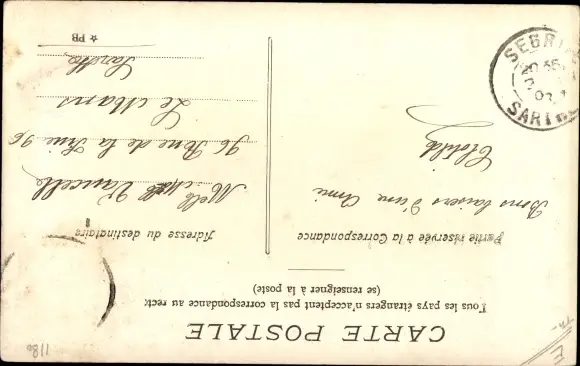 CARTE POSTALE
Tous les pays étrangers n'acceptent pas la correspondance au recto
(se renseigner à la poste)
Partie réservée à la Correspondance
Adresse du destinataire
Bons baisers d'une Amie
Clotilde
Melle
96 Rue de la 96
Le Mans
Sarthe
☆ PB
SEGRIE
20 35
SARTHE
118
E